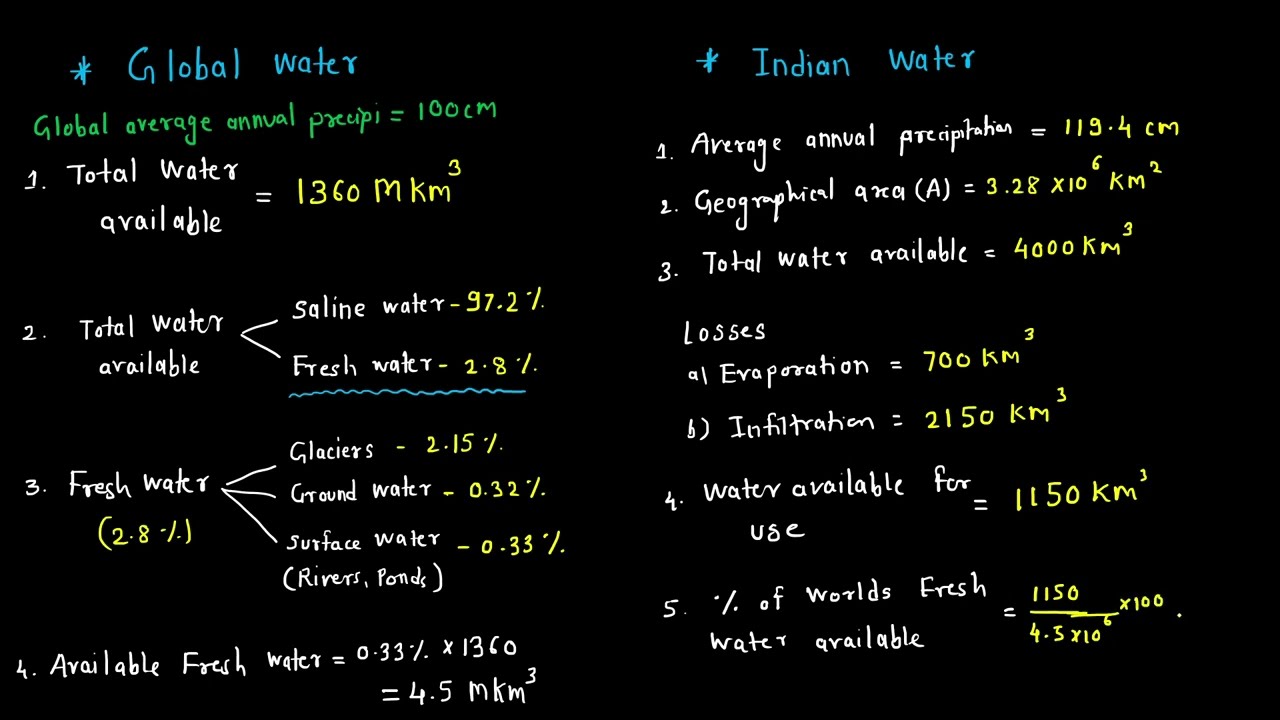 * Global water
Global average annual precipi = 100cm
1. Total Water available = 1360 M km³
2. Total Water available
Saline water - 97.2 %
Fresh water - 2.8 %
3. Fresh water (2.8 %)
Glaciers - 2.15 %
Ground water - 0.32 %
Surface water - 0.33 %
(Rivers, Ponds)
4. Available Fresh water = 0.33% × 1360
= 4.5 Mkm³
* Indian Water
1. Average annual precipitation = 119.4 cm
2. Geographical area (A) = 3.28 × 10⁶ Km²
3. Total water available = 4000 Km³
Losses
a) Evaporation = 700 Km³
b) Infiltration = 2150 Km³
4. Water available for use = 1150 Km³
5. % of worlds Fresh water available = 1150 / 4.5 × 10⁶ × 100 .